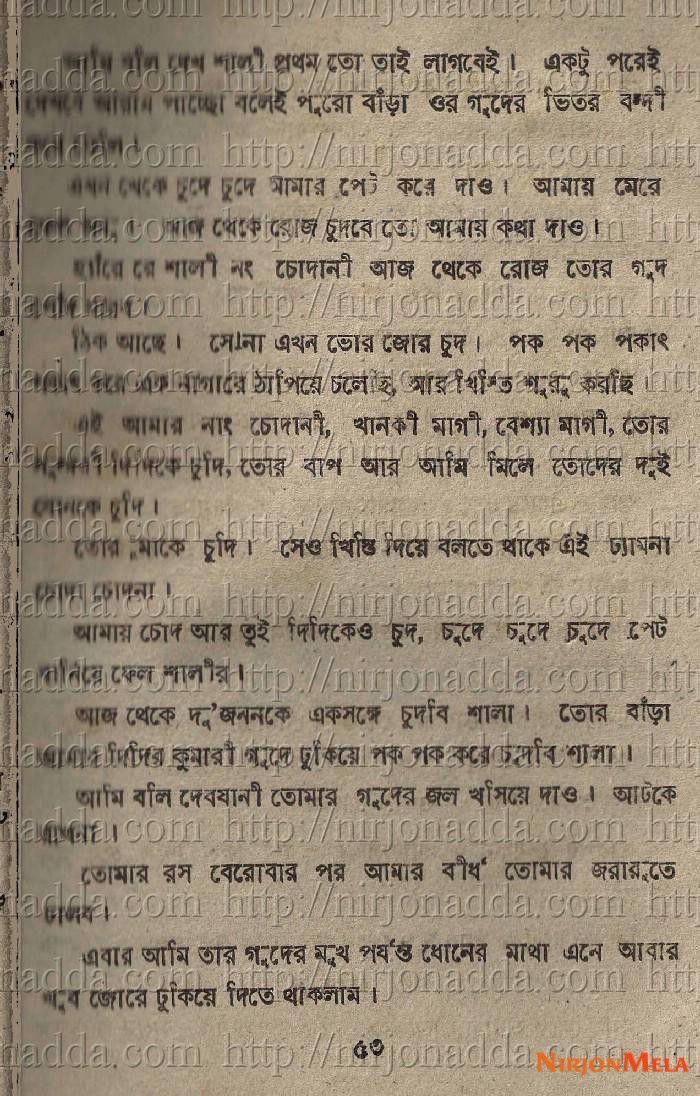 আমি বলি দেখ শালী প্রথম তো তাই লাগবেই। একটু পরেই
দেখবে আরাম পাচ্ছো বলেই পুরো বাঁড়া ওর গুদের ভিতর বন্দী
এখন থেকে চুদে চুদে আমার পেট করে দাও। আমায় মেরে
আজ থেকে রোজ চুদবে তো আমায় কথা দাও।
হ্যাঁরে রে শালী নং চোদানী আজ থেকে রোজ তোর গুদ
ঠিক আছে। সোনা এখন ভোর জোর চুদ। পক পক পকাৎ
করে এক নাগারে ঠাপিয়ে চলেছি, আর খিস্তি শুরু করছি।
এই আমার নাং চোদানী, খানকী মাগী, বেশ্যা মাগী, তোর
দিদিকে চুদি, তোর বাপ আর আমি মিলে তোদের দুই
বোনকে চুদি।
তোর মাকে চুদি। সেও খিস্তি দিয়ে বলতে থাকে এই ঢ্যামনা
চোদা চোদনা।
আমায় চোদ আর তুই দিদিকেও চুদ, চুদে চুদে চুদে পেট
বানিয়ে ফেল শালীর।
আজ থেকে দু'জননকে একসঙ্গে চুদবি শালা। তোর বাঁড়া
আমার দিদির কুমারী গুদে ঢুকিয়ে পক পক করে চুদবি শালা।
আমি বলি দেবযানী তোমার গুদের জল খসিয়ে দাও। আটকে
রাখনা।
তোমার রস বেরোবার পর আমার বীর্ষ তোমার জরায়ুতে
ঢালব।
এবার আমি তার গুদের মুখ পর্যন্ত ধোনের মাথা এনে আবার
খুব জোরে ঢুকিয়ে দিতে থাকলাম।
৫৩
http://nirjonadda.com
NIRJONMELA